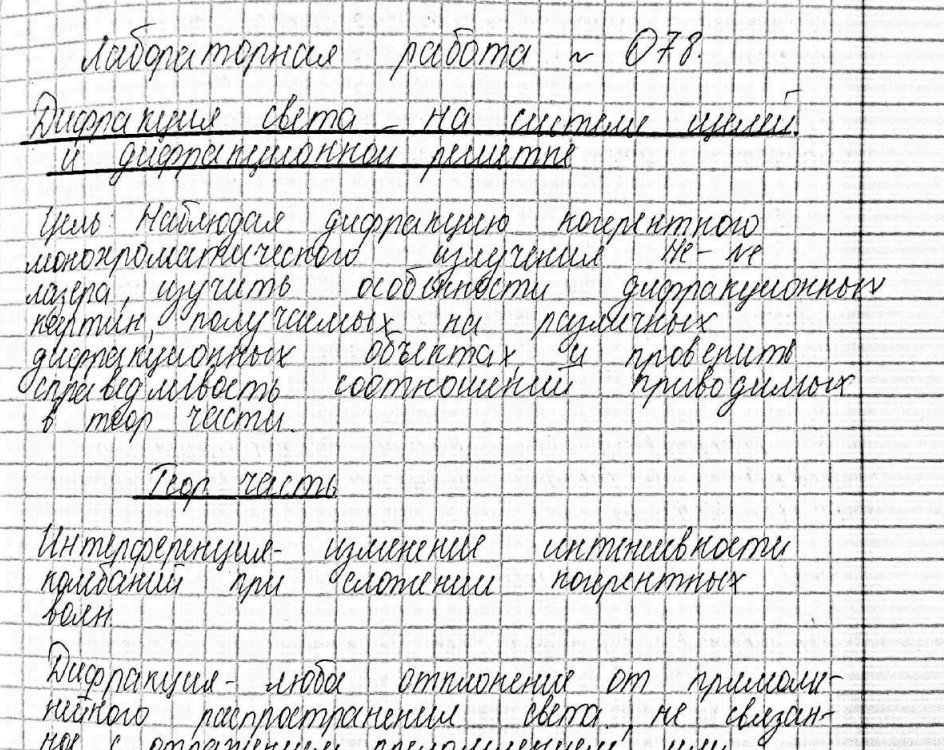 Лабораторная работа ~ О78.
Дифракция света на системе щелей
и дифракционной решетке
Цель: Наблюдая дифракцию когерентного
монохроматического излучения He-Ne
лазера, изучить особенности дифракционных
картин, получаемых на различных
дифракционных объектах, и проверить
справедливость соотношений приводимых
в теор части.
Теор. часть
Интерференция- изменение интенсивности
колебаний при сложении когерентных
волн.
Дифракция- любое отклонение от прямоли-
нейного распространения света не связан-
ное с отражением, преломлением или